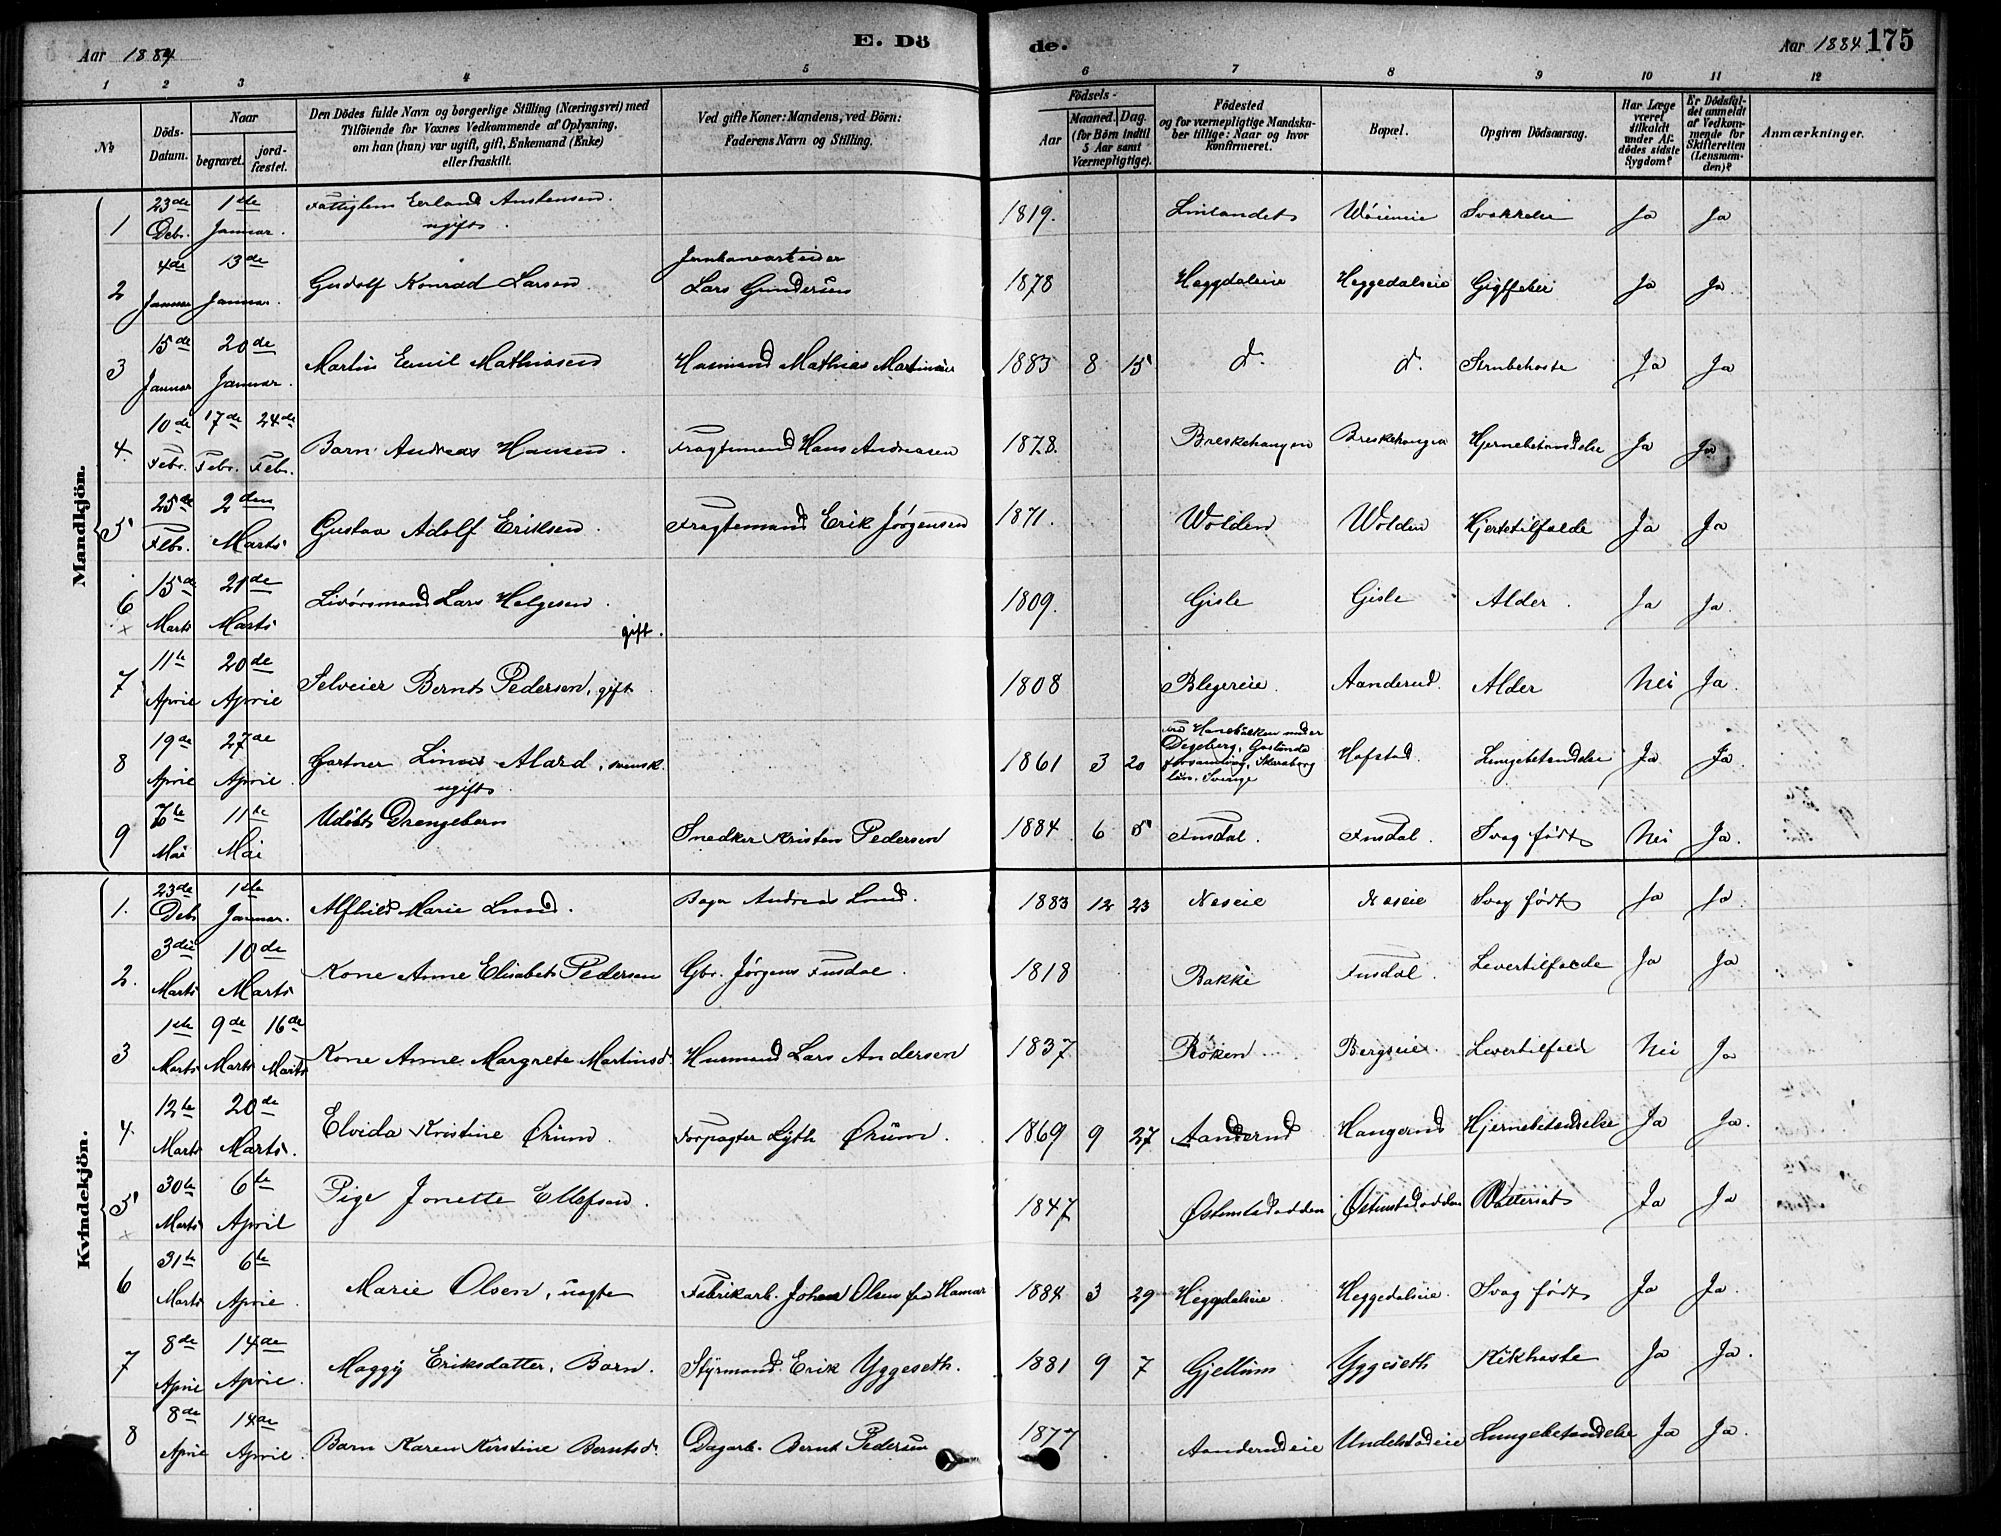 Aar 1884
E. Dö
de.
Aar 1884.
175
1 2 3 4 5 6 7 8 9 10 11 12
№
Döds-Datum.
Naar
begravet.
jord-fæstet.
Den Dödes fulde Navn og borgerlige Stilling (Næringsvei) med
Tilföiende for Voxnes Vedkommende af Oplysning,
om han (hun) var ugift, gift, Enkemand (Enke)
eller fraskilt.
Ved gifte Koner: Mandens, ved Börn:
Faderens Navn og Stilling.
Födsels-
Aar
Maaned. Dag.
(for Börn indtil
5 Aar samt
Værnepligtige).
Födested
og for værnepligtige Mandska-
ber tillige: Naar og hvor
konfirmeret.
Bopæl.
Opgiven Dödsaarsag.
Har Læge
været
tilkaldt
under Af-
dödes sidste
Sygdom?
Er Dödsfal-
det anmeldt
af Vedkom-
mende for
Skifteretten
(Lensman-
den)?
Anmærkninger.
Mandkjön.
1 23de Debr. 1ste Januar. Fattiglem Erland Anstensen. ugift. 1819. Ja Ja
2 4de Januar 13de Januar. Gudolf Konrad Larsen Lars Gundersen 1878 Heggdaleie Heggedalseie Gigtfeber Ja Ja
3 15de Januar 20de Januar. Martin Emil Mathiasen Husmand Mathias Martinsen 1883 8 15 d. d. Strubehoste Ja Ja
4. 10de Febr. 17de Febr. 24de Febr. Barn Andreas Hansen. Fragtemand Hans Andreasen 1878. Breskehaugen Breskehaugen Hjernebetændelse Ja Ja
5 25de Febr. 2den Marts Gustav Adolf Eriksen. Fragtemand Erik Jörgensen 1871. Wolden Wolden Hjertetilfælde Ja Ja
6 15de Marts 21de Marts Livörsmand Lars Helgesen. gift. 1809. Gisle Gisle Alder. Ja Ja.
7 11te April 20de April Selveier Bernt Pedersen, gift. 1808 Blegereie. Aanderud. Alder Nei Ja.
8 19de April 27de April. Gartner Linus Alard, svensk. ugift. 1861 3 20 fra under Degeberg, Forsamling, Skaraborg län, Sverige Hofstad. Lungebetændelse Ja Ja.
9 7te Mai 11te Mai Udöbt Drengebarn Snedker Kristen Pedersen 1884 6 5 Fusdal. Fusdal. Svag födt Nei Ja.
Kvindekjön.
1. 23de Debr 1ste Januar. Alfhild Marie Lund. Bager Andreas Lund. 1883 12 23 Neseie Neseie Svag födt Ja Ja.
2. 3die Marts 10de Marts Kone Anne Elisabeth Pedersen Gbr. Jörgens Fusdal. 1818 Bakke Fusdal. Levertilfælde Ja Ja
3 1ste Marts 9de Marts 16de Marts Kone Anne Margrete Martinsd. Husmand Lars Andersen 1837 Röken Bergseie. Levertilfæld Nei Ja
4. 12te Marts 20de Marts. Elvida Kristine Ørum. Forpagter Lyth Ørum. 1869 9 27 Aanderud Haugerud Hjernebetændelse Ja Ja.
5 30te Marts 6te April Pige Jonette Ellefsen. 1847 Østenstadodden Östenstadodden Vattersot Ja Ja
6 31te Marts 6te April. Marie Olsen, uægte Fabrikarb. Johan Olsen fra Hamar 1884 3 29 Heggdalseie. Heggedalseie. Svag födt Ja Ja.
7 8de April 14de April. Maggy Eriksdatter, Barn. Styrmand Erik Yggeseth. 1881 9 7 Gjellum Yggeseth Kikhoste Ja Ja.
8 8de April 14de April. Barn Karen Kristine Berntsd. Dagarb. Bernt Pedersen 1877 Aanderudeie Undelstadeie Lungebetændelse Ja Ja.